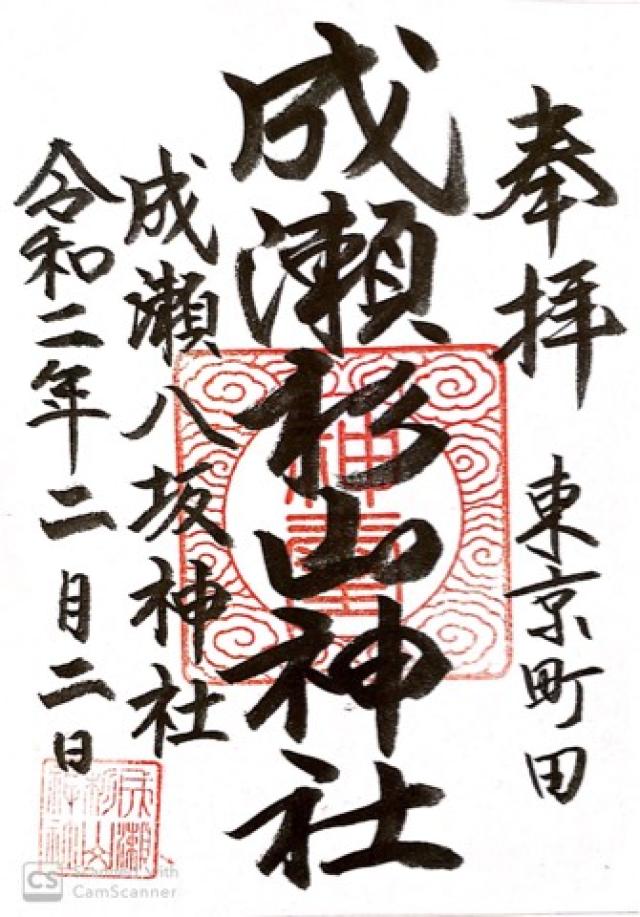 奉拝
東京町田
成瀬杉山神社
成瀬八坂神社
令和二年二月二日
成瀬
杉山
神社
CS Scanned with
CamScanner